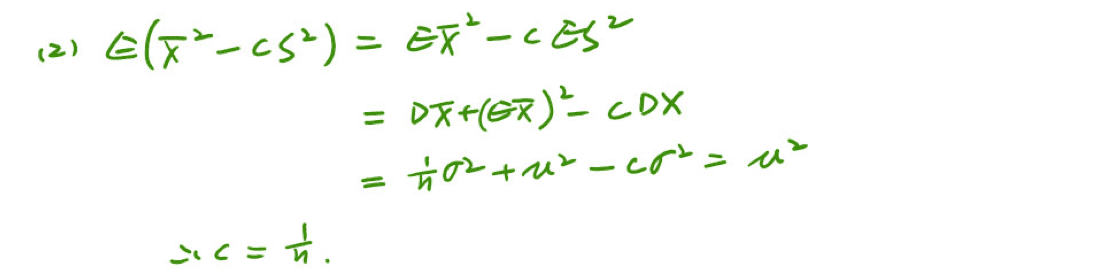 (2) E(X̄² - cS²) = EX̄² - cES²
= DX̄+(EX̄)² - cDX
= 1/n σ² + μ² - cσ² = μ²
∴ c = 1/n.